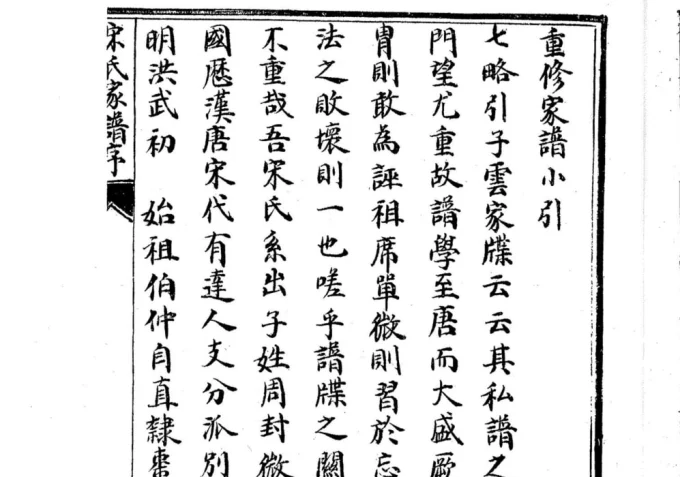 重修家譜小引
七略引子雲家牒云云其私譜之
門望尤重故譜學至唐而大盛厥
胄則敢為誣祖席單微則習於忘
法之敗壞則一也嗟乎譜牒之關
不重哉吾宋氏系出子姓周封微
國歷漢唐宋代有達人支分派別
明洪武初　始祖伯仲自直隸棗
宋氏家譜序